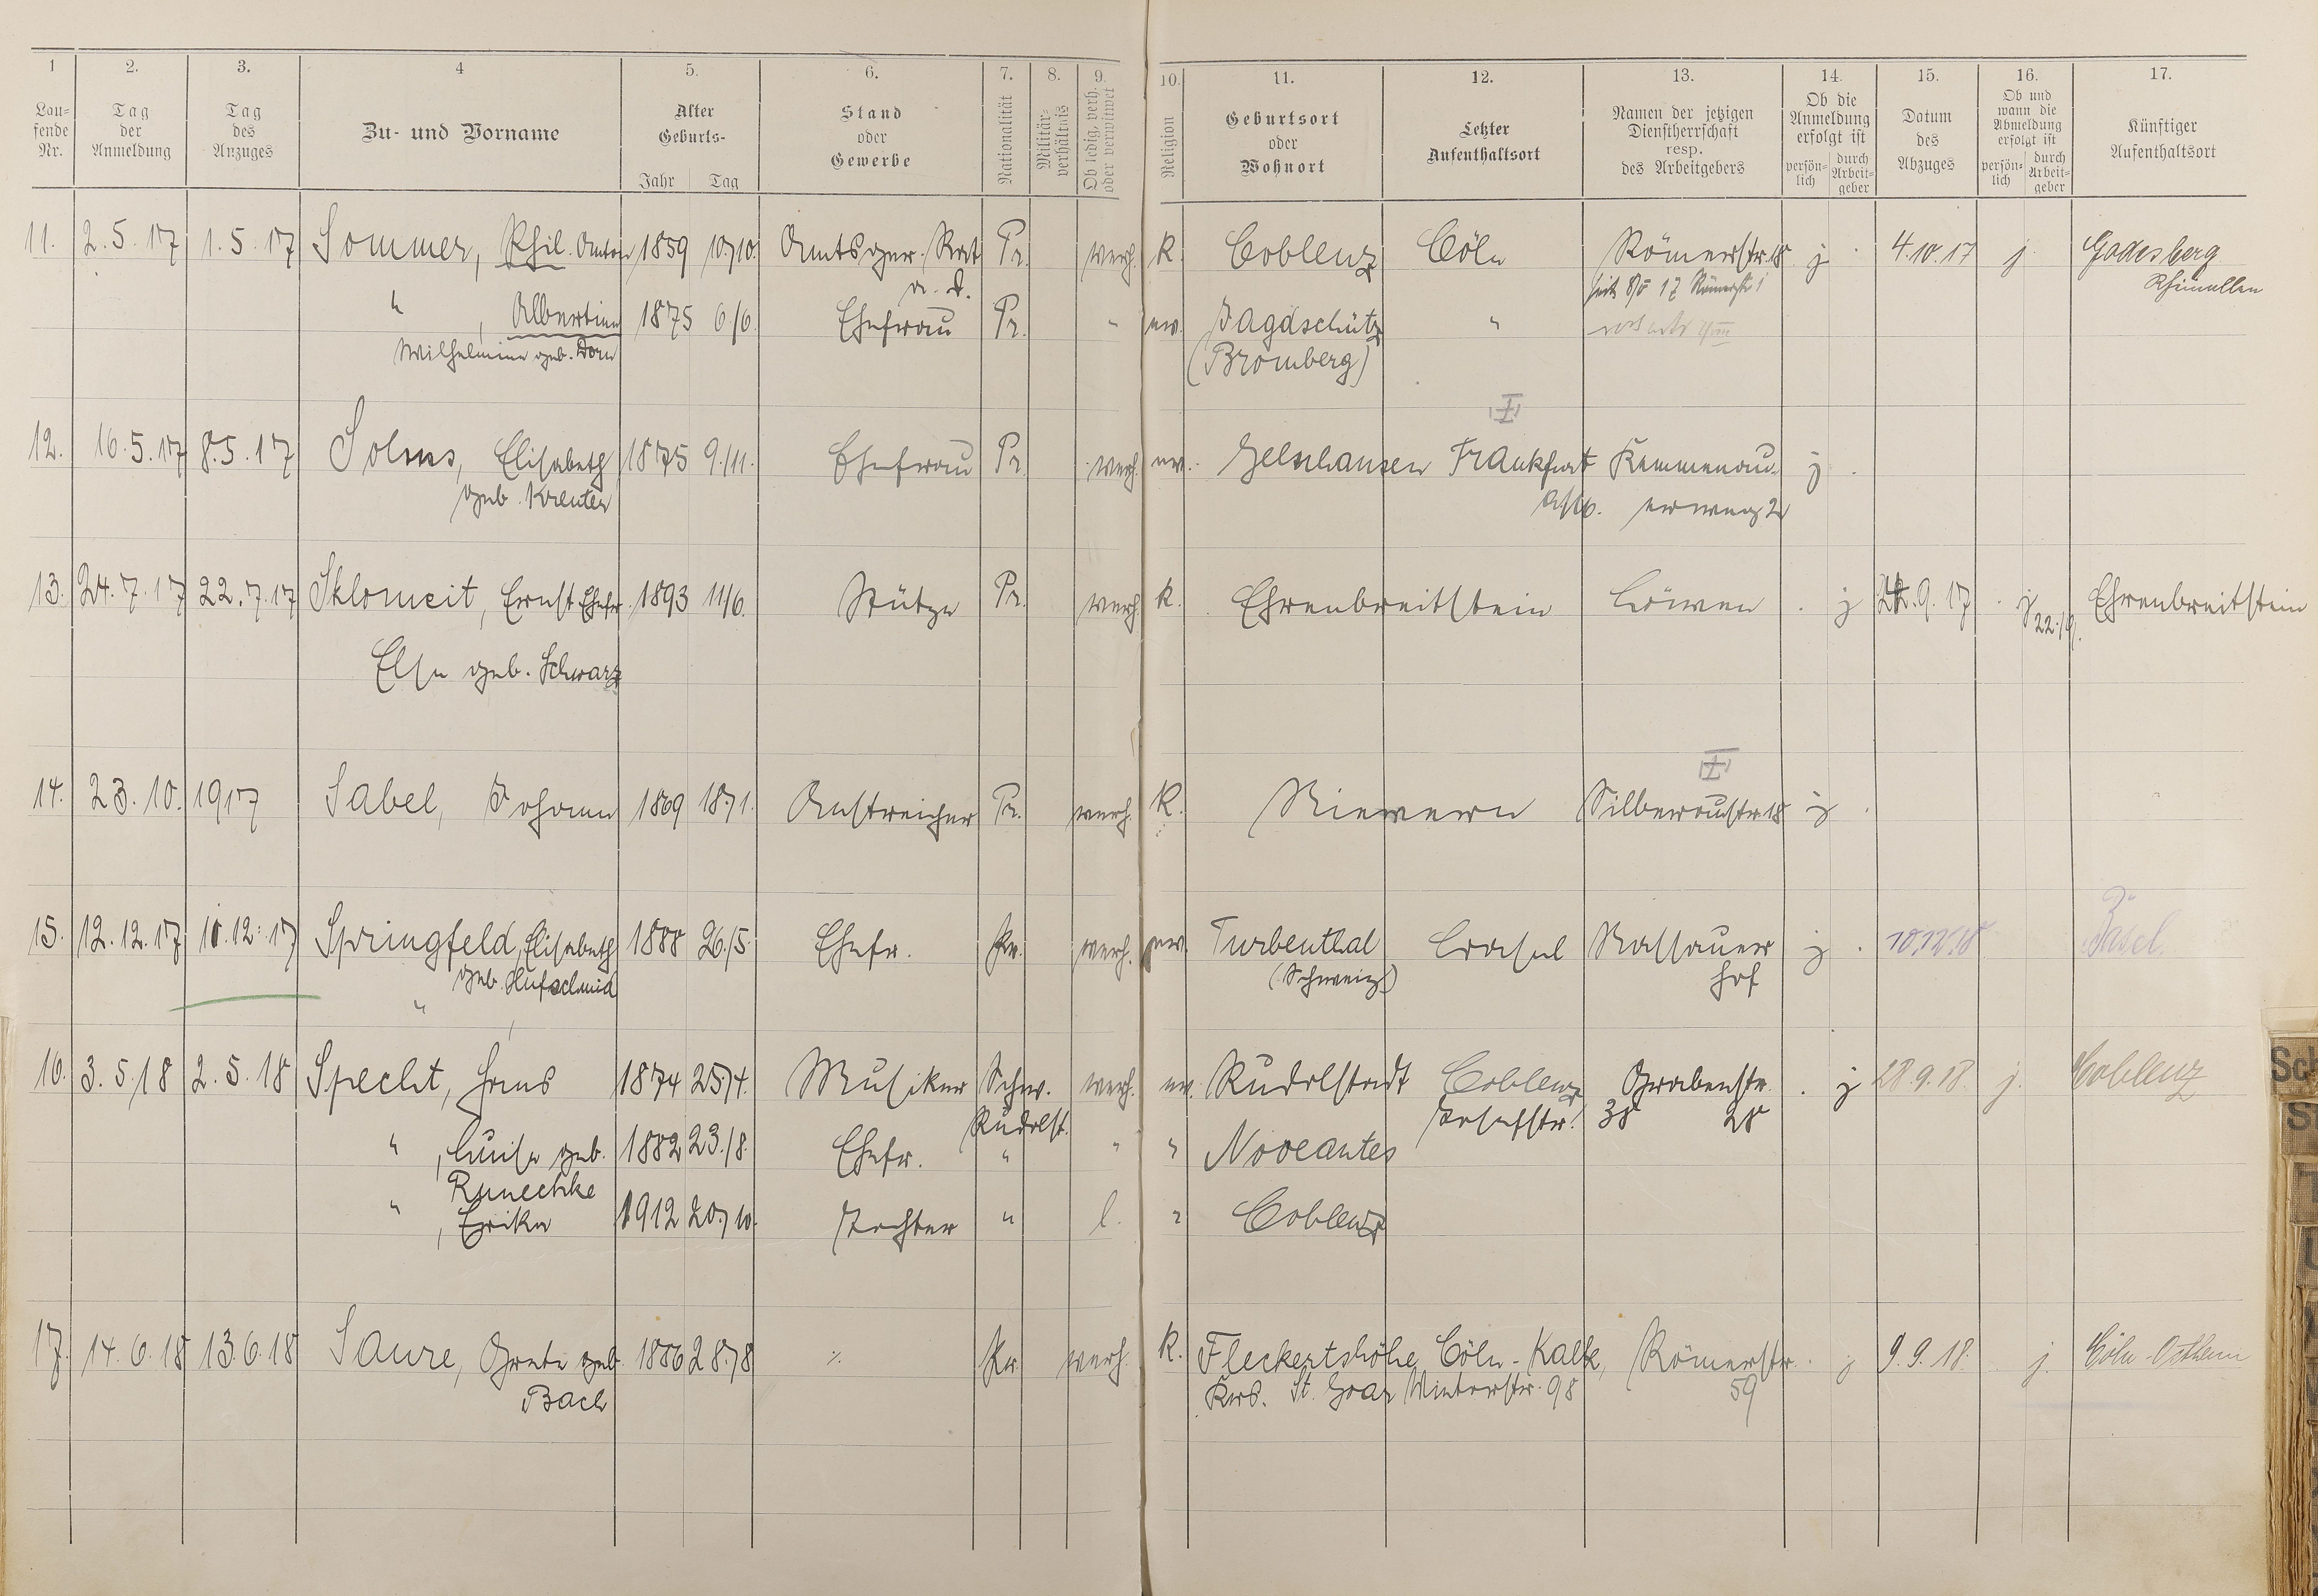 1 2. 3. 4 5. 6. 7. 8. 9. 10. 11. 12. 13. 14. 15. 16. 17.
Lau-fende Nr. Tag der Anmeldung Tag des Anzuges Zu- und Vorname Alter Geburts- Jahr Tag Stand oder Gewerbe Nationalität Militär-verhältnis Ob ledig, verh. oder verwitwet Religion Geburtsort oder Wohnort Letzter Aufenthaltsort Namen der jetzigen Dienstherrschaft resp. des Arbeitgebers Ob die Anmeldung erfolgt ist persön-lich durch Arbeit-geber Datum des Abzuges Ob und wann die Abmeldung erfolgt ist persön-lich durch Arbeit-geber Künftiger Aufenthaltsort
11. 2.5.17 1.5.17 Sommer, Phil. Anton 1859 10./10. Amtsger. Rat Pr. verh. k. Coblenz Cöln Römerstr. 18 j 4.10.17 j Godesberg
a. D. seit 8/5 17 Römerstr 1
" , Albertine 1875 6/6. Ehefrau Pr. " ev. Jagdschütz "
Wilhelmine geb. Dorn (Bromberg)
12. 16.5.17 8.5.17 Solms, Elisabeth 1875 9./11. Ehefrau Pr. verh. ev. Gelnhausen Frankfurt Kemmenau- j
geb. Kreuter erweg 2
13. 24.7.17 22.7.17 Skloweit, Ernst Ehefr. 1893 11/6. Stütze Pr. verh. k. Ehrenbreitstein Löwen j 22.9.17 j 22./9. Ehrenbreitstein
Else geb. Schwarz
14. 23.10.1917 Sabel, Johann 1869 18./1. Anstreicher Pr. verh. k. Nievern Silberaustr. 18 j
15. 12.12.17 11.12.17 Springfeld, Elisabeth 1888 26./5. Ehefr. Pr. verh. ev. Turbenthal Cassel Nassauer j 10.12.18 Basel
geb. Hufschmid (Schweiz) hof
"
16. 3.5.18 2.5.18 Specht, Hans 1874 25./4. Musiker Schw. verh. ev. Rudolstadt Coblenz Grabenstr. j 28.9.18. j. Coblenz
Rudolst. Josefstr. 38 28
" , Luise geb. 1882 23./8. Ehefr. " " " Noveantes
Runechke
" , Erika 1912 20./10. Tochter " l. " Coblenz
17. 14.6.18 13.6.18 Saure, Grete geb. 1886 28./8 ·/. Pr. verh. k. Fleckertshöhe Cöln-Kalk, Römerstr. j 9.9.18. j. Cöln-Ostheim
Bach Krs. St. Goar Winterstr. 98 59